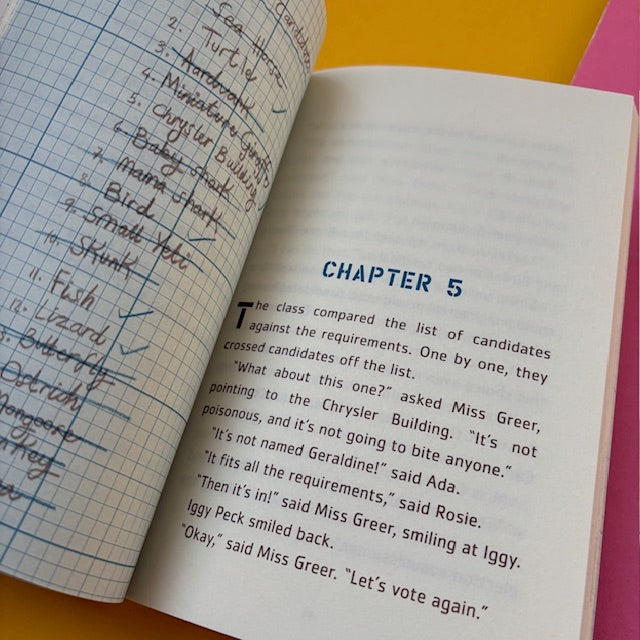 Candidates
Sea Horse
2. Turtle
3. Aardvark
4. Miniature Giraffe
5. Chrysler Building
6. Baby shark
7. Mama shark
8. Bird
9. Small Yeti
10. Skunk
11. Fish
12. Lizard
Butterfly
Ostrich
Mongoose
CHAPTER 5
The class compared the list of candidates
against the requirements. One by one, they
crossed candidates off the list.
"What about this one?" asked Miss Greer,
pointing to the Chrysler Building. "It's not
poisonous, and it's not going to bite anyone."
"It's not named Geraldine!" said Ada.
"It fits all the requirements," said Rosie.
"Then it's in!" said Miss Greer, smiling at Iggy.
Iggy Peck smiled back.
"Okay," said Miss Greer. "Let's vote again."